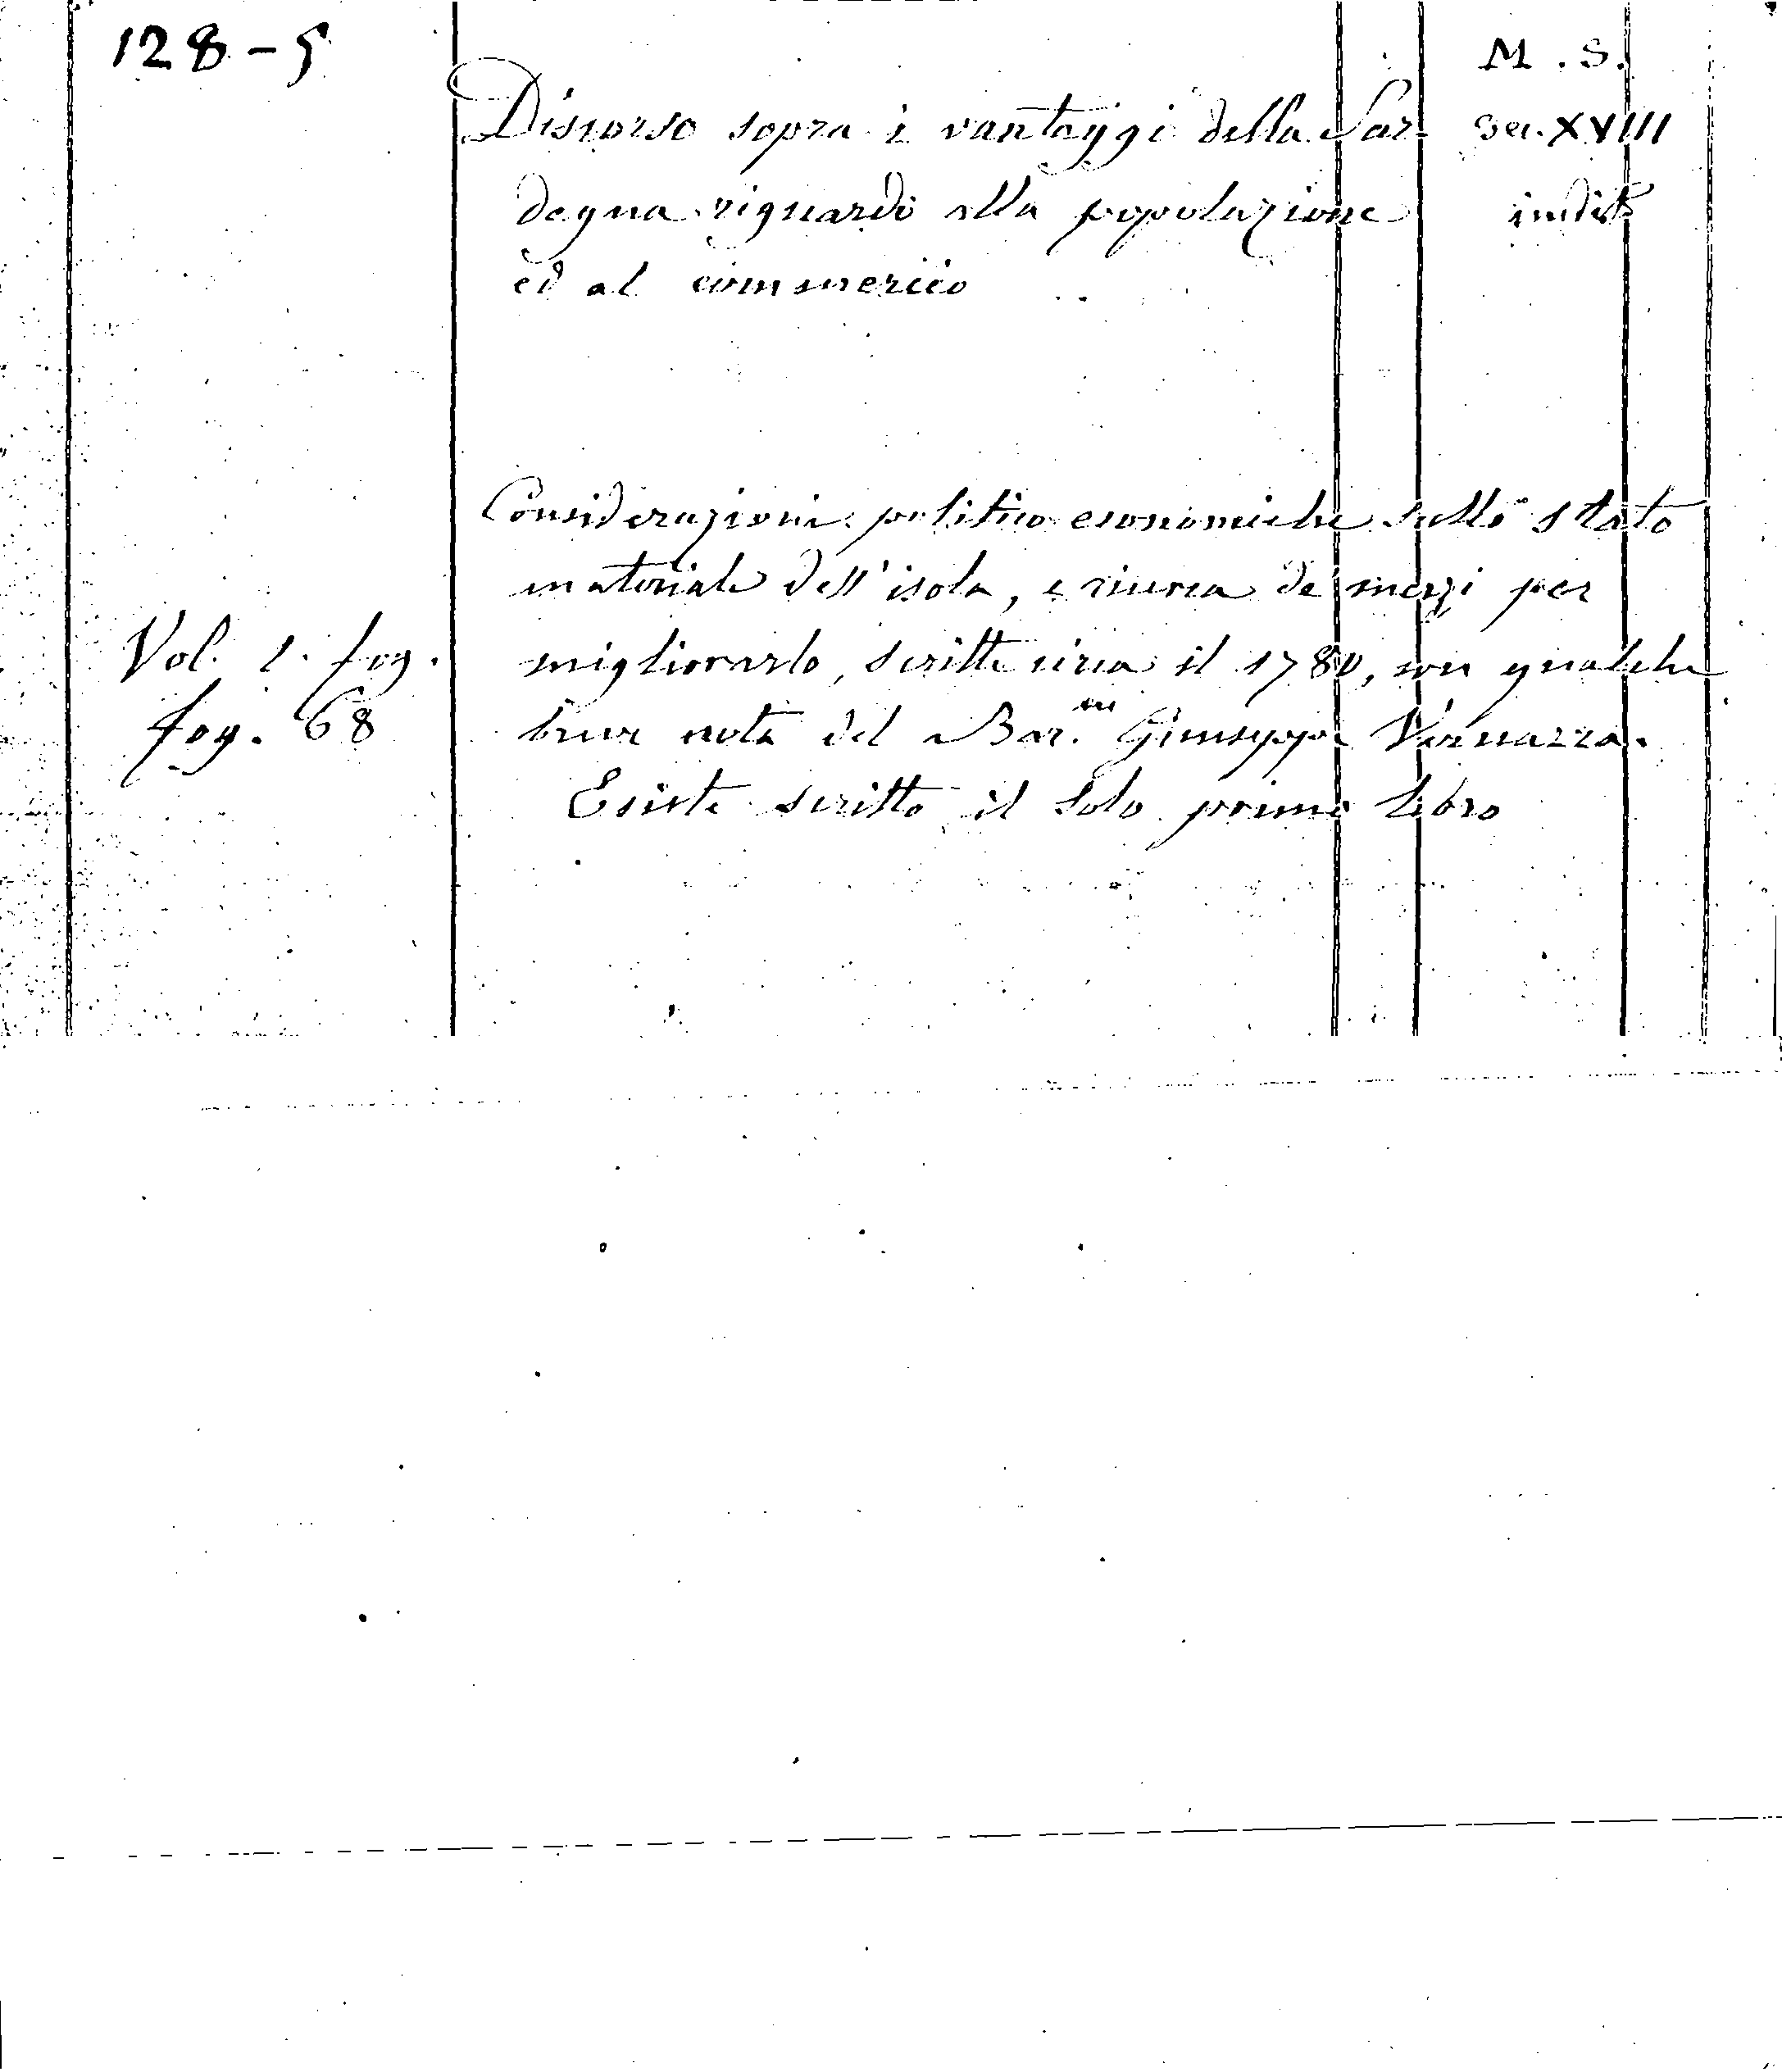 128-5
M. S.
Discorso sopra i vantaggi della Sar
sec. XVIII
degna riguardo alla popolazione
inedito
ed al commercio
Considerazioni politico economiche sullo stato
materiale dell'isola, e ricerca de' mezzi per
Vol. 1. fog.
migliorarlo, scritte circa il 1780, con qualche
fog. 68
breve nota del Bar.ⁿ Giuseppe Vernazza.
Esiste scritto il solo primo libro